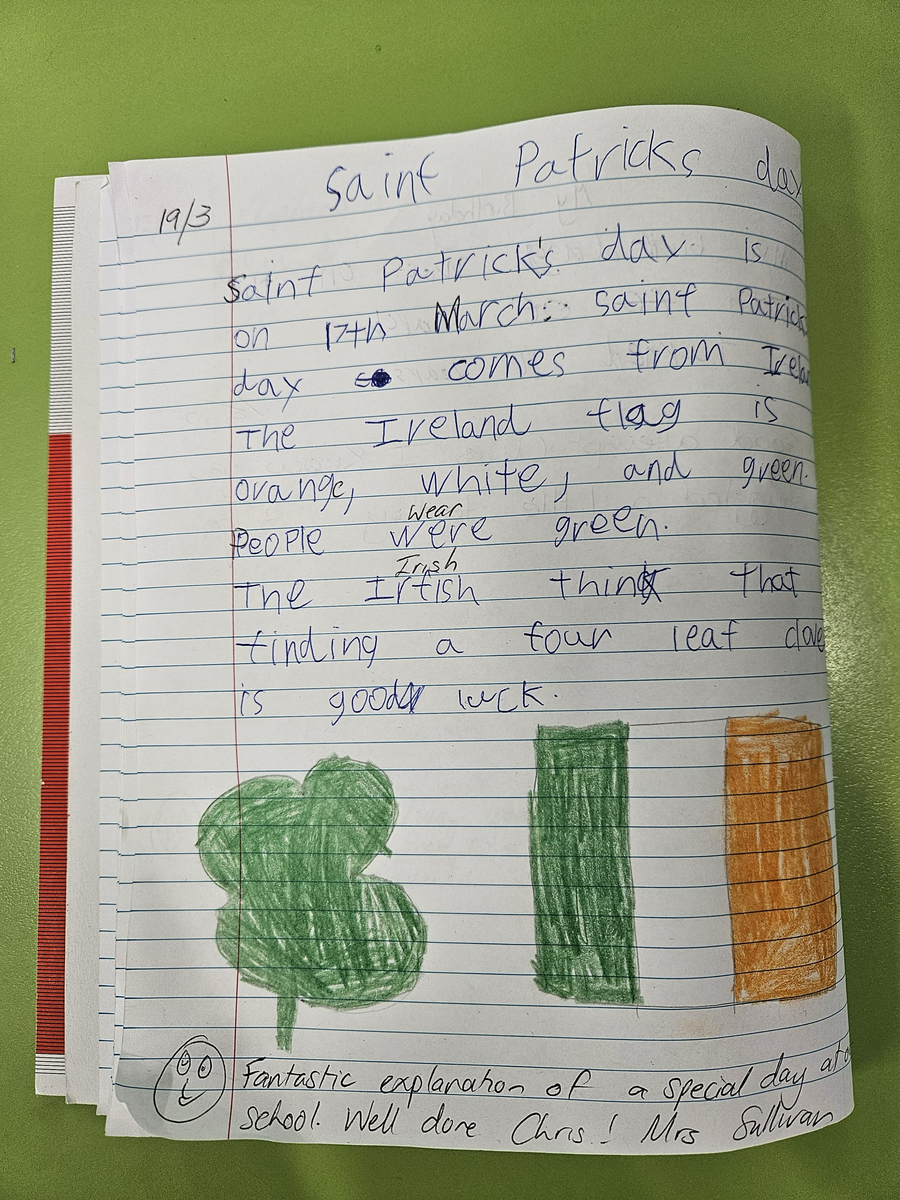 Saint Patricks day
19/3
Saint Patrick's day is
on 17th March. Saint Patrick
day comes from Irelan
The Ireland flag is
orange, white, and green.
Wear
People were green.
Irish
The Irtish think that
finding a four leaf clove
is good luck.
Fantastic explanation of a special day at o
school. Well done Chris! Mrs Sullivan